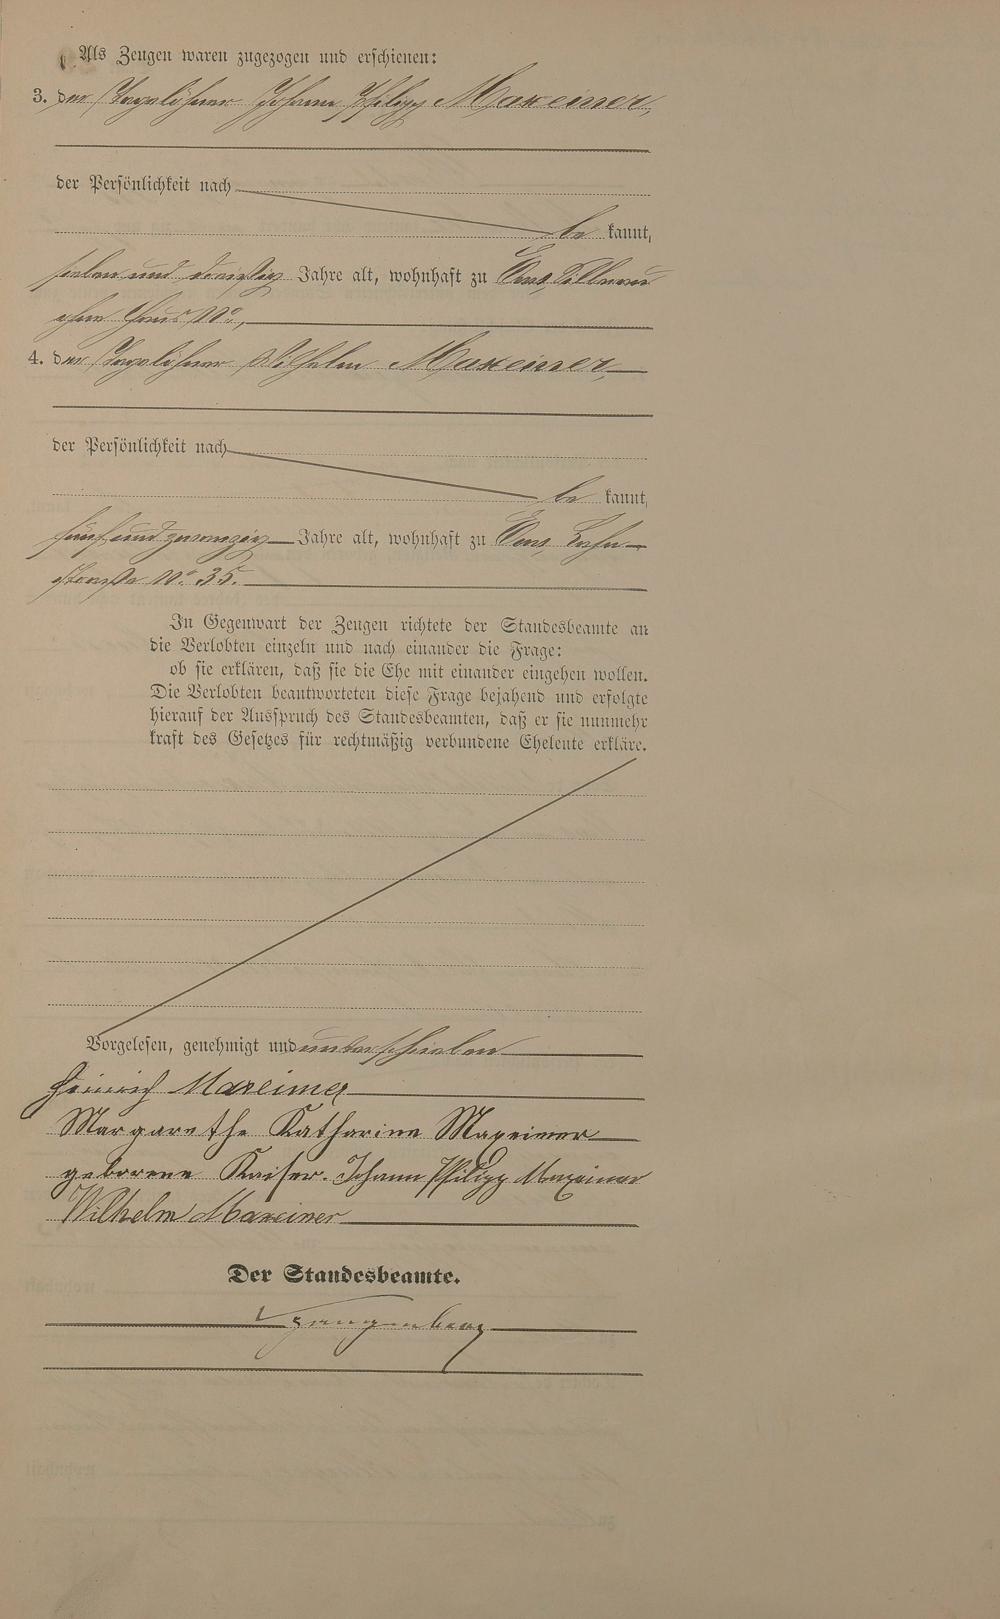 Als Zeugen waren zugezogen und erschienen:
3. der Tagelöhner Johann Philipp Maxeiner,
der Persönlichkeit nach
be kannt,
sieben und dreißig Jahre alt, wohnhaft zu Ems,
ohne Haus No.,
4. der Tagelöhner Wilhelm Maxeiner,
der Persönlichkeit nach
be kannt,
fünf und zwanzig Jahre alt, wohnhaft zu Ems, Lahn-
straße No. 35.
In Gegenwart der Zeugen richtete der Standesbeamte an
die Verlobten einzeln und nach einander die Frage:
ob sie erklären, daß sie die Ehe mit einander eingehen wollen.
Die Verlobten beantworteten diese Frage bejahend und erfolgte
hierauf der Ausspruch des Standesbeamten, daß er sie nunmehr
kraft des Gesetzes für rechtmäßig verbundene Eheleute erkläre.
Vorgelesen, genehmigt und unterschrieben
Heinrich Maxeimer
Margarethe Katharine Maxeiner
geborene Kaiser. Johann Philipp Maxeiner
Wilhelm Maxeiner
Der Standesbeamte.